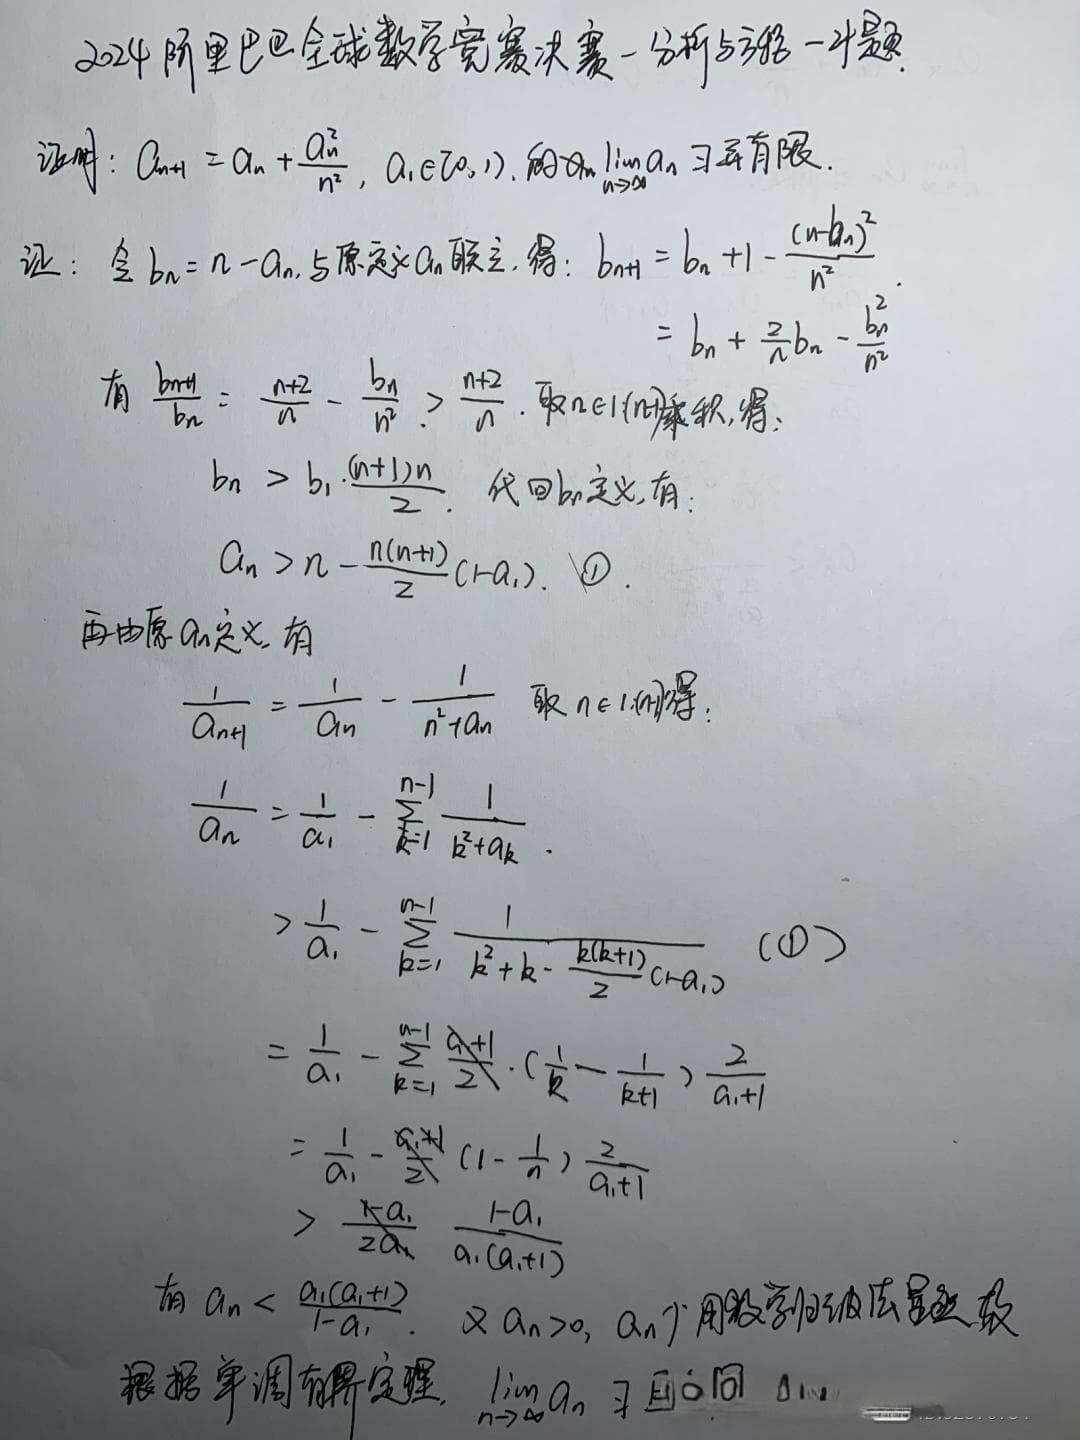 2024阿里巴巴全球数学竞赛决赛-分析与方程-计题.
证明: aₙ₊₁ = aₙ + aₙ²/n², a₁∈(0,1), 的 lim_{n→∞} aₙ ∃ 且有限.
证: 令 bₙ = n - aₙ, 与原定义aₙ联立, 得: bₙ₊₁ = bₙ + 1 - (n-bₙ)²/n².
= bₙ + 2/n bₙ - bₙ²/n²
有 bₙ₊₁/bₙ = (n+2)/n - bₙ/n² > (n+2)/n. 取n∈1:(n-1)乘积, 得:
bₙ > b₁·(n+1)n/2. 代回bₙ定义, 有:
aₙ > n - n(n+1)/2 (1-a₁). ①.
再由原aₙ定义, 有
1/aₙ₊₁ = 1/aₙ - 1/(n²+aₙ) 取n∈1:(n-1)得:
1/aₙ = 1/a₁ - Σ_{k=1}^{n-1} 1/(k²+aₖ).
> 1/a₁ - Σ_{k=1}^{n-1} 1/(k²+k-k(k+1)/2 (1-a₁)) (①)
= 1/a₁ - Σ_{k=1}^{n-1} (1/k - 1/(k+1)) 2/(a₁+1)
= 1/a₁ - (1 - 1/n) 2/(a₁+1)
> (1-a₁)/(a₁(a₁+1))
有 aₙ < a₁(a₁+1)/(1-a₁). 又 aₙ>0, aₙ 用数学归纳法
根据单调有界定理, lim_{n→∞} aₙ ∃